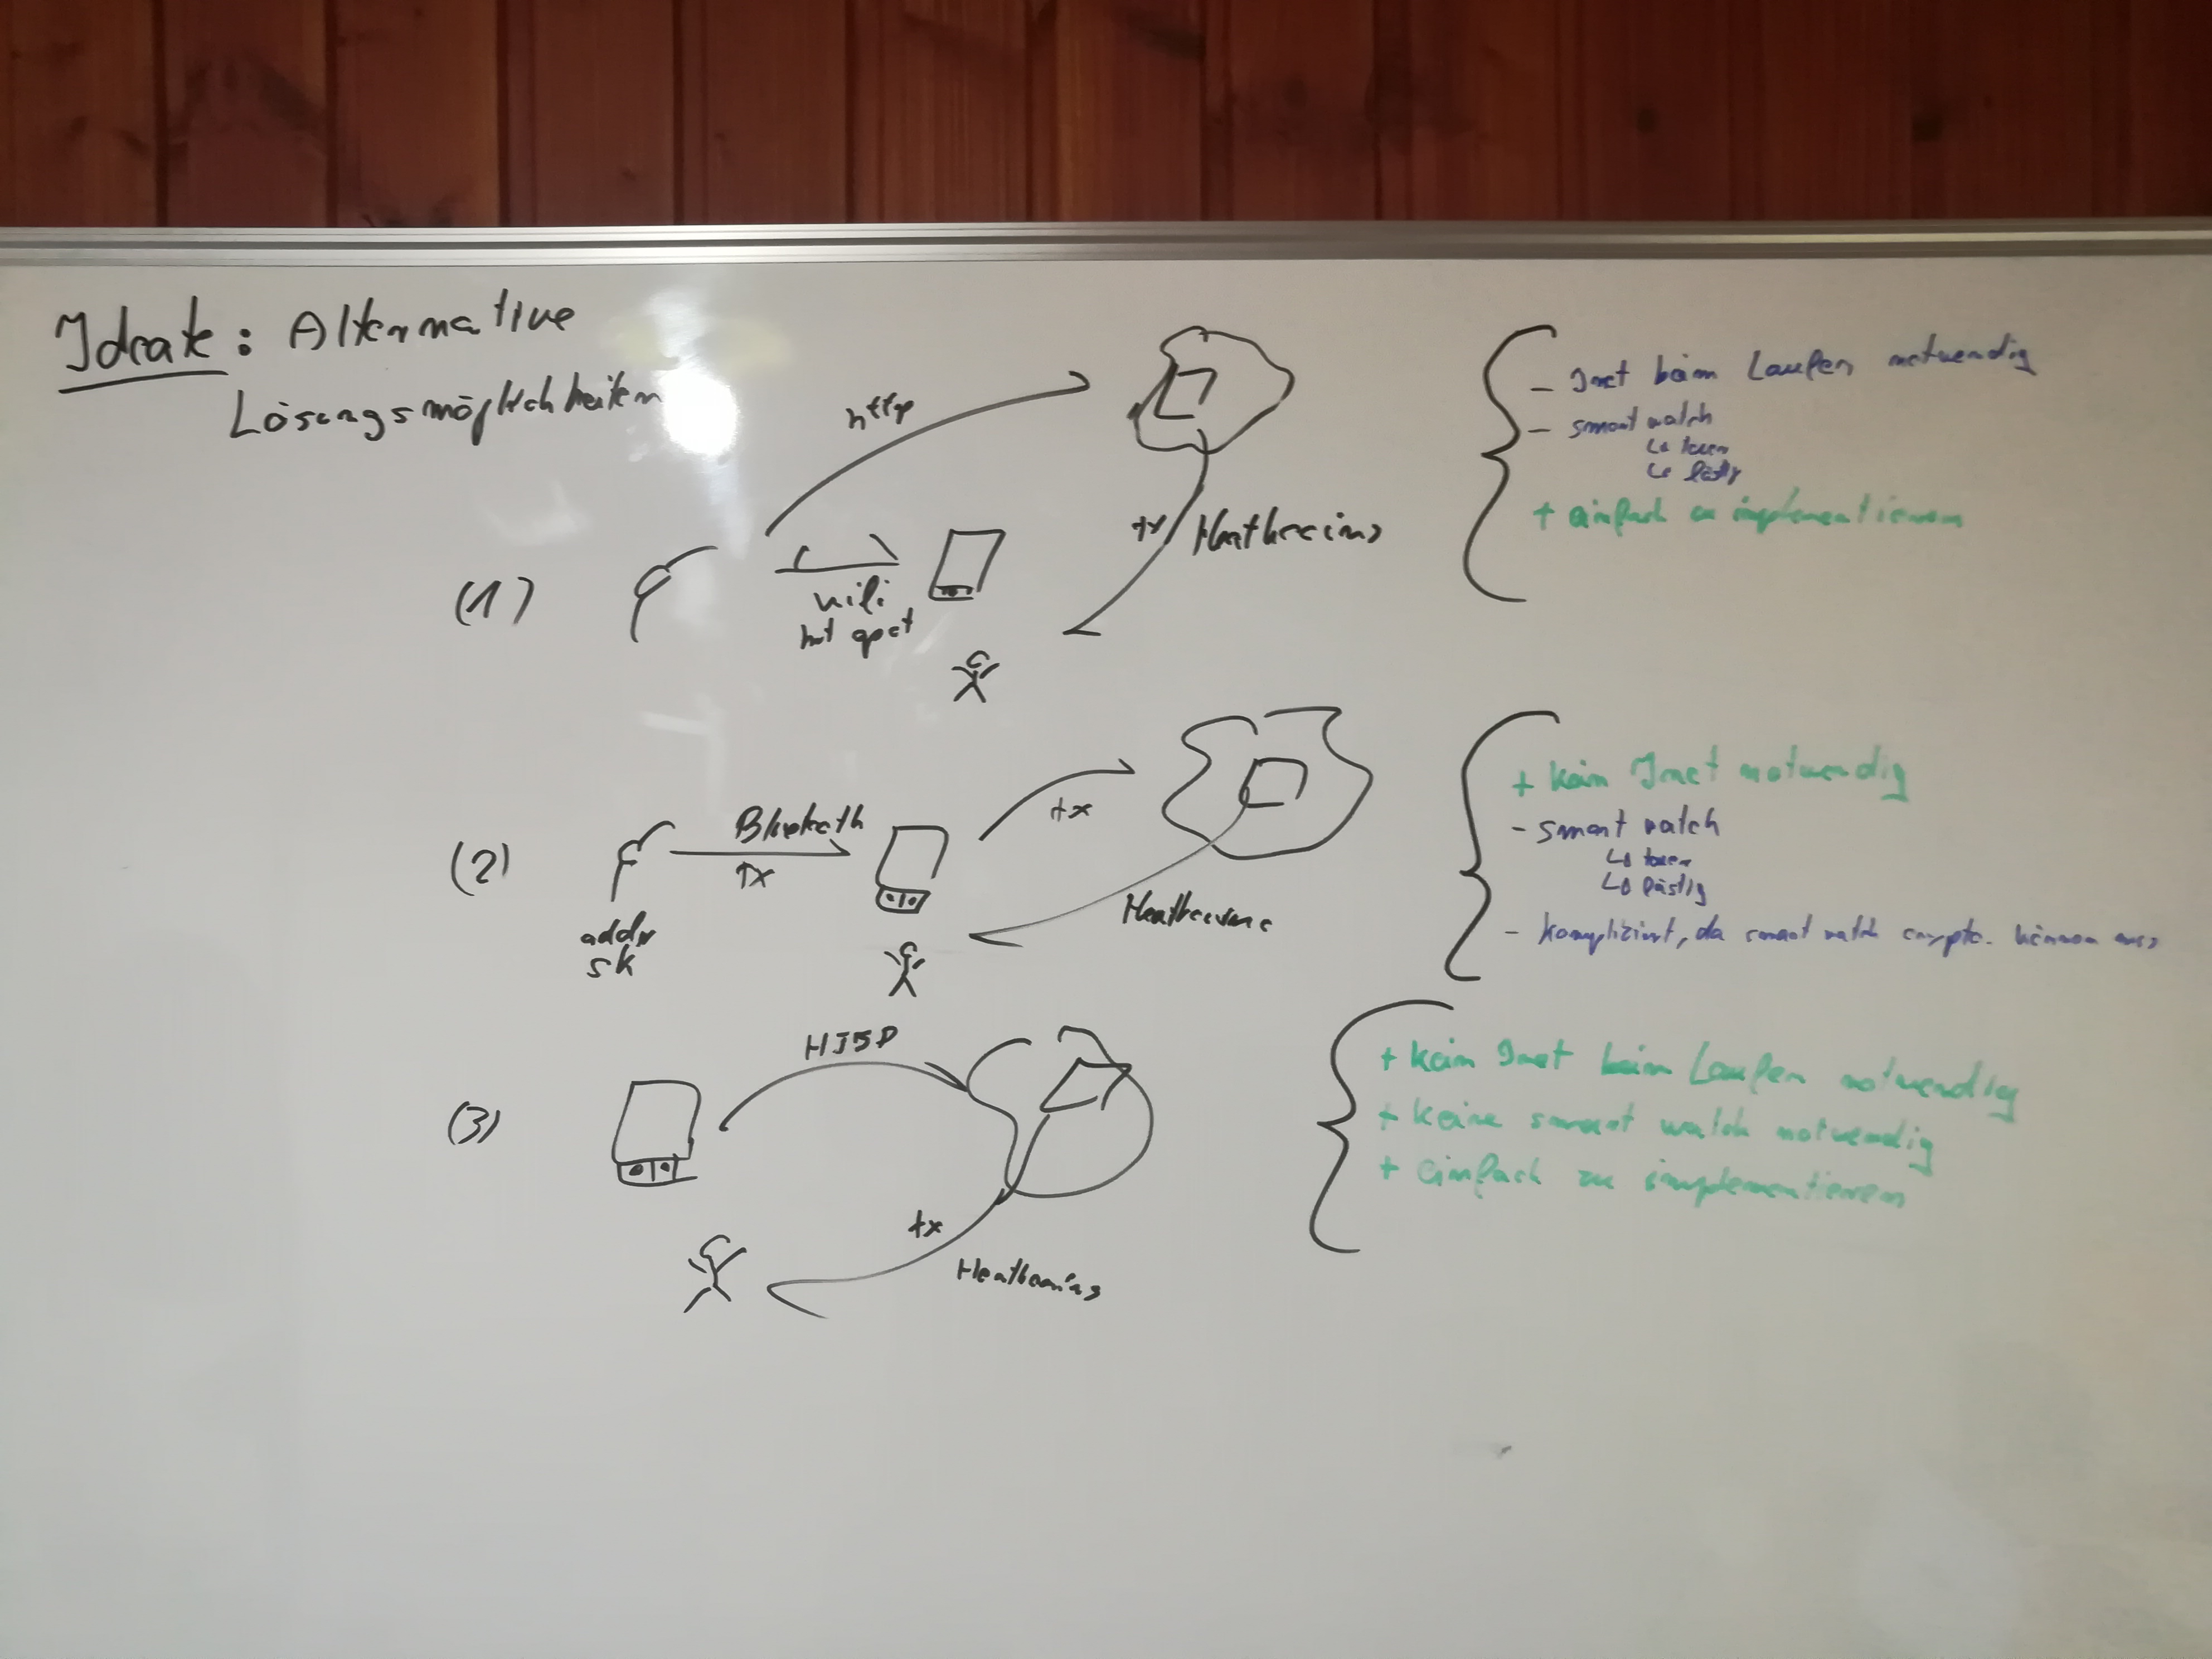 Ideate: Alternative
Lösungsmöglichkeiten
(1)
http
wifi
hot spot
tx
- Inet beim Laufen notwendig
- smart watch
↳ teuer
↳ lästig
+ einfach zu implementieren
(2)
addr
sk
Bluetooth
TX
tx
+ kein Inet notwendig
- smart watch
↳ teuer
↳ lästig
- kompliziert, da smart watch crypto. können muss
(3)
tx
+ kein Inet beim Laufen notwendig
+ keine smart watch notwendig
+ einfach zu implementieren